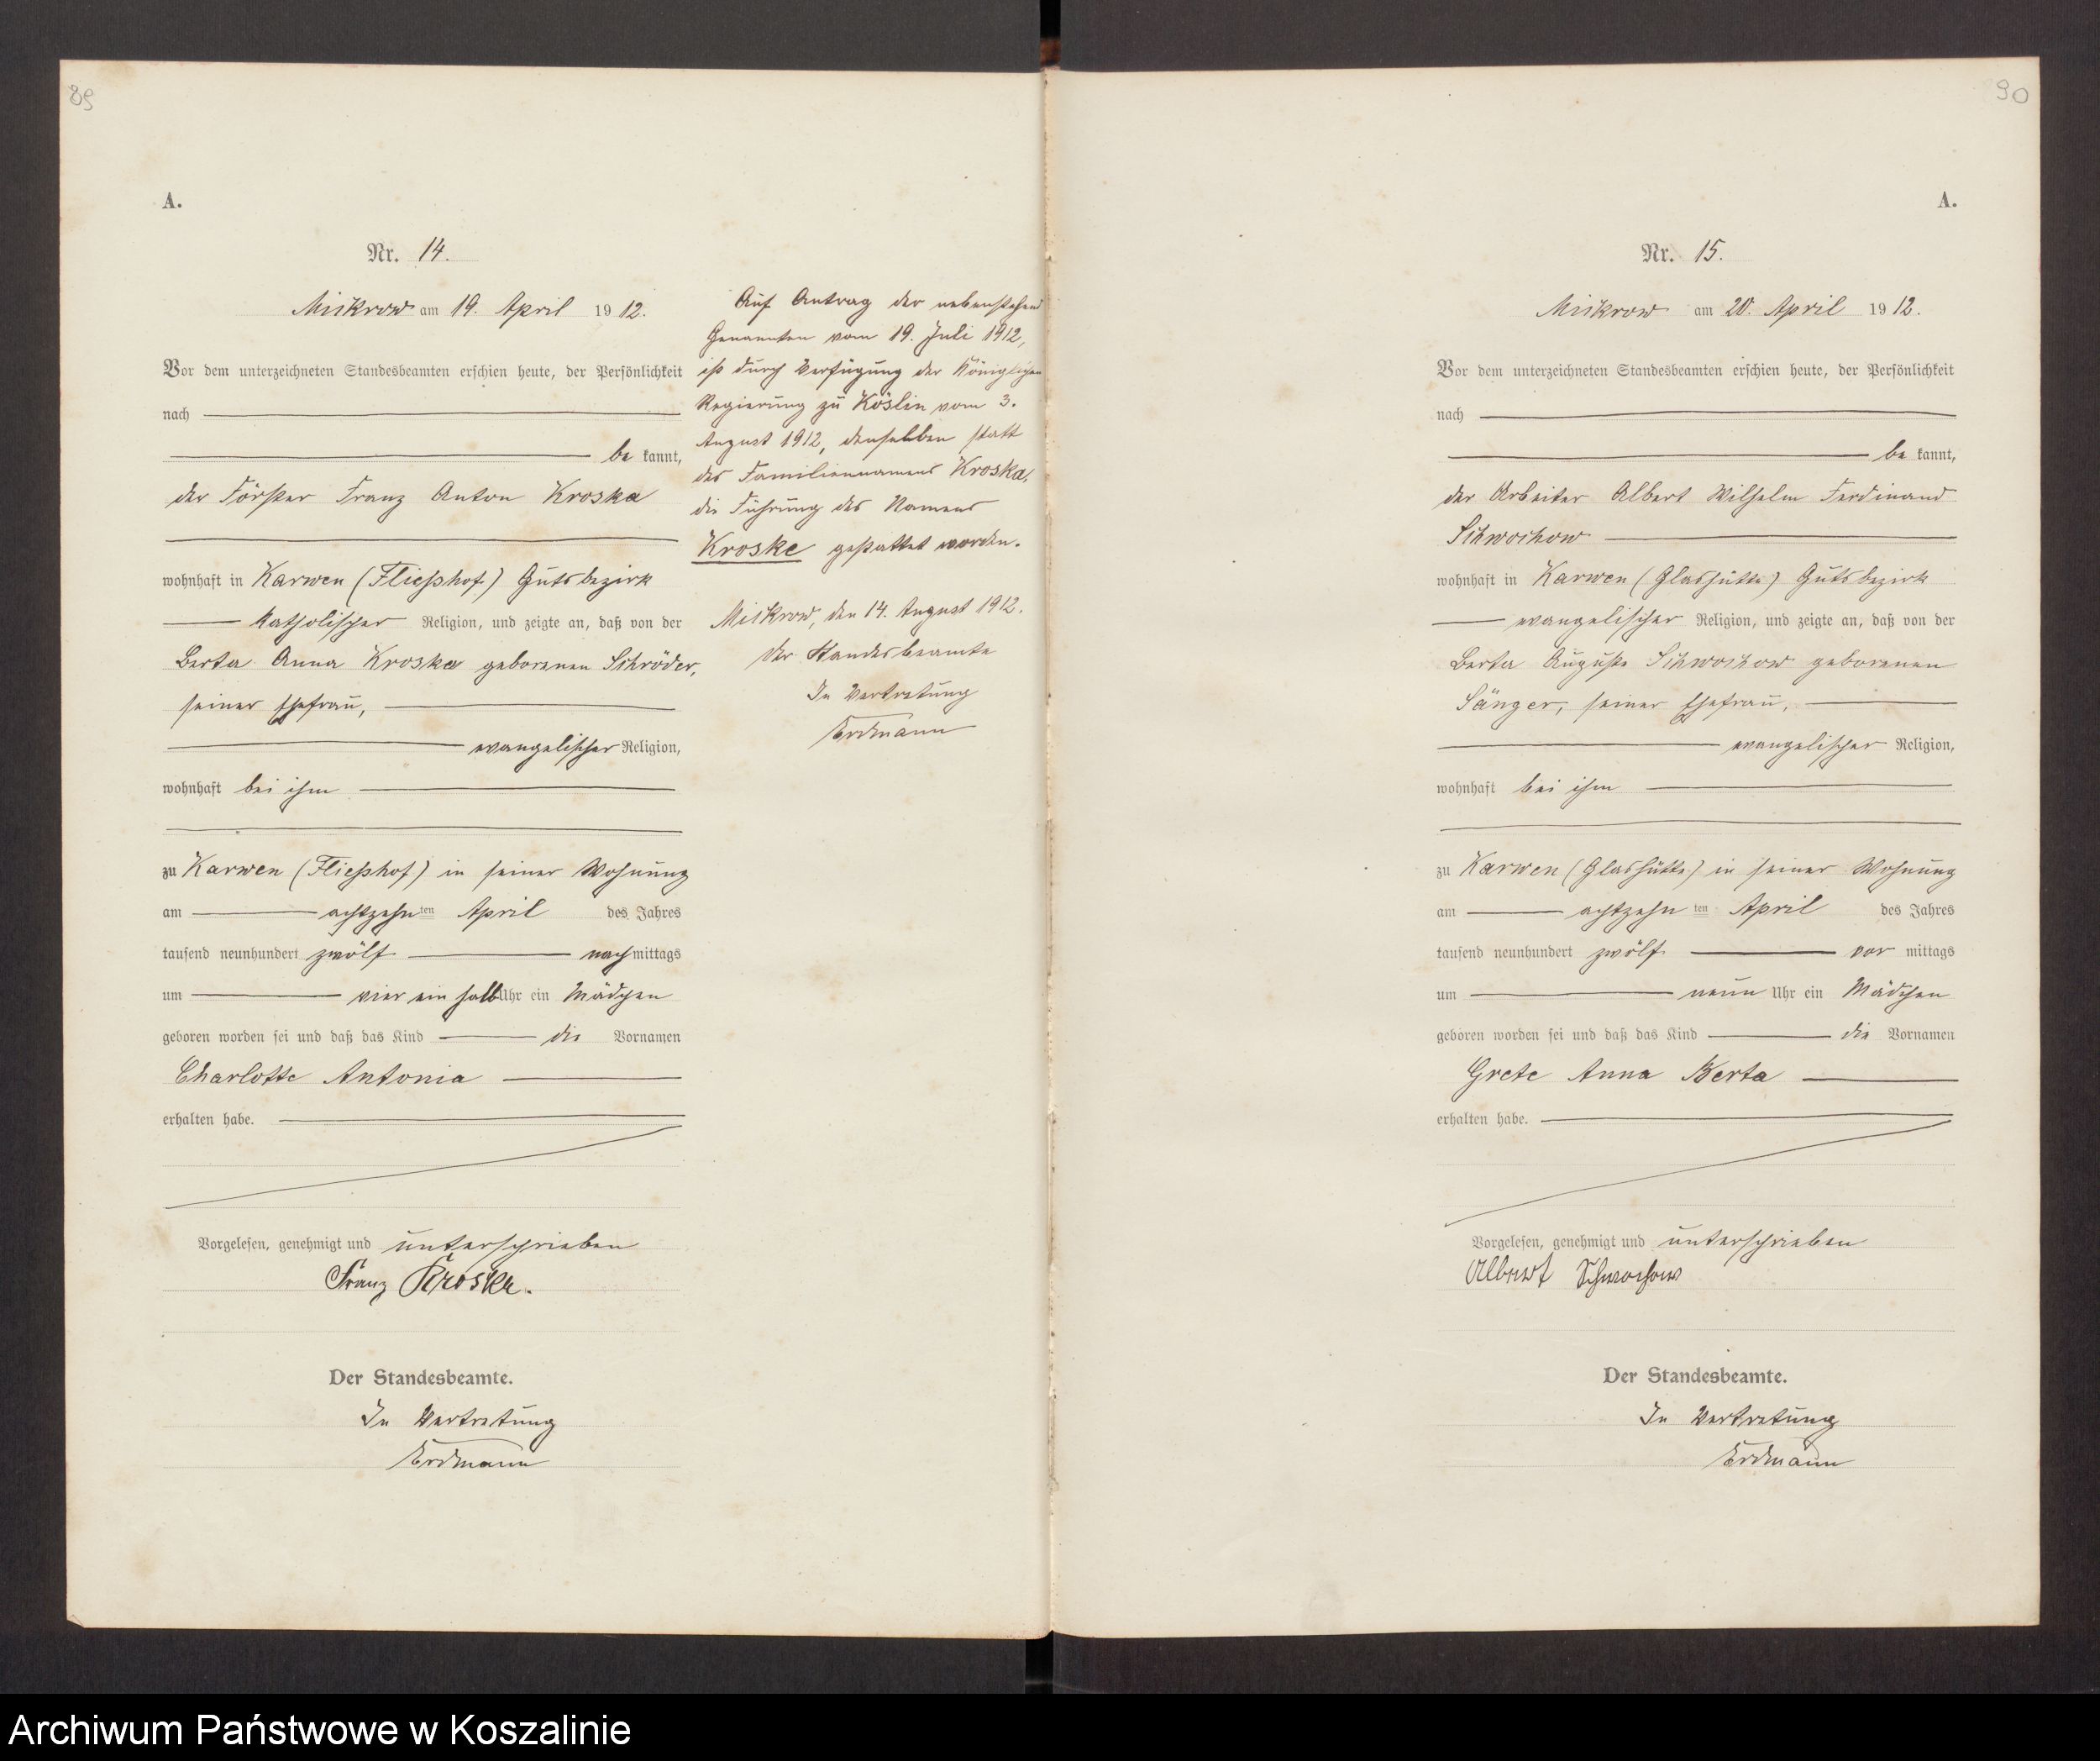 89
A.
Nr. 14.
Mickrow am 19. April 1912.
Vor dem unterzeichneten Standesbeamten erschien heute, der Persönlichkeit
nach
be kannt,
der Förster Franz Anton Kroska
wohnhaft in Karwen (Fließhof) Gutsbezirk
katholischer Religion, und zeigte an, daß von der
Berta Anna Kroska geborenen Schröder,
seiner Ehefrau,
evangelischer Religion,
wohnhaft bei ihm
zu Karwen (Fließhof) in seiner Wohnung
am achtzehn ten April des Jahres
tausend neunhundert zwölf nachmittags
um vier ein halb Uhr ein Mädchen
geboren worden sei und daß das Kind die Vornamen
Charlotte Antonia
erhalten habe.
Vorgelesen, genehmigt und unterschrieben
Franz Kroska.
Der Standesbeamte.
In Vertretung
Erdmann
Auf Antrag der nebenstehend
Genannten vom 19. Juli 1912,
ist durch Verfügung der Königlichen
Regierung zu Köslin vom 3.
August 1912, denselben statt
des Familiennamens Kroska,
die Führung des Namens
Kroske gestattet worden.
Mickrow, den 14. August 1912.
Der Standesbeamte
In Vertretung
Erdmann
90
A.
Nr. 15.
Mickrow am 20. April 1912.
Vor dem unterzeichneten Standesbeamten erschien heute, der Persönlichkeit
nach
be kannt,
der Arbeiter Albert Wilhelm Ferdinand
Schwochow
wohnhaft in Karwen (Glashütte) Gutsbezirk
evangelischer Religion, und zeigte an, daß von der
Berta Auguste Schwochow geborenen
Sänger, seiner Ehefrau,
evangelischer Religion,
wohnhaft bei ihm
zu Karwen (Glashütte) in seiner Wohnung
am achtzehn ten April des Jahres
tausend neunhundert zwölf vor mittags
um neun Uhr ein Mädchen
geboren worden sei und daß das Kind die Vornamen
Grete Anna Berta
erhalten habe.
Vorgelesen, genehmigt und unterschrieben
Albert Schwochow
Der Standesbeamte.
In Vertretung
Erdmann
Archiwum Państwowe w Koszalinie